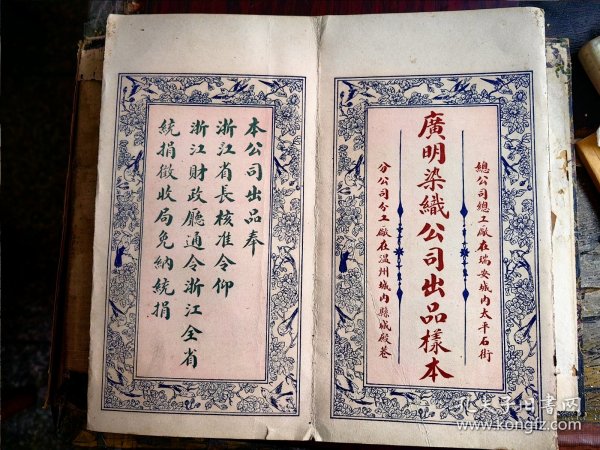 總公司總工廠在瑞安城內太平石街
廣明染織公司出品樣本
分公司分工廠在溫州城內縣城殿巷
本公司出品奉
浙江省長核准令仰
浙江財政廳通令浙江全省
統捐徵收局免納統捐
孔夫子旧书网
www.kongfz.com